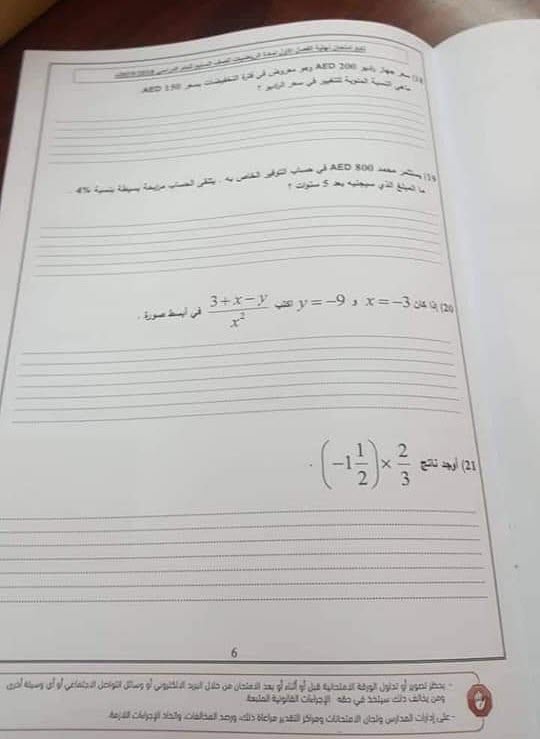 تابع امتحان نهاية الفصل الأول لمادة الرياضيات للصف السابع للعام الدراسي 2018/2019
18) سعر جهاز راديو AED 200 وهو معروض في فترة التخفيضات بسعر AED 150.
ماهي النسبة المئوية للتغيير في سعر الراديو ؟
19) يستثمر محمد AED 800 في حساب التوفير الخاص به . يتلقى الحساب مرابحة بسيطة بنسبة 4% .
ما المبلغ الذي سيجنيه بعد 5 سنوات ؟
20) إذا كان x = −3 و y = −9 اكتب (3 + x − y)/x² في أبسط صورة .
21) أوجد ناتج 2/3 × (−1 1/2) .
6
- يحظر تصوير أو تداول الورقة الامتحانية قبل أو أثناء أو بعد الامتحان من خلال البريد الالكتروني أو وسائل التواصل الاجتماعي أو أي وسيلة أخرى
ومن يخالف ذلك سيتخذ في حقه الإجراءات القانونية المتبعة.
- على إدارات المدارس ولجان الامتحانات ومراكز التقدير مراعاة ذلك، ورصد المخالفات، واتخاذ الإجراءات اللازمة.